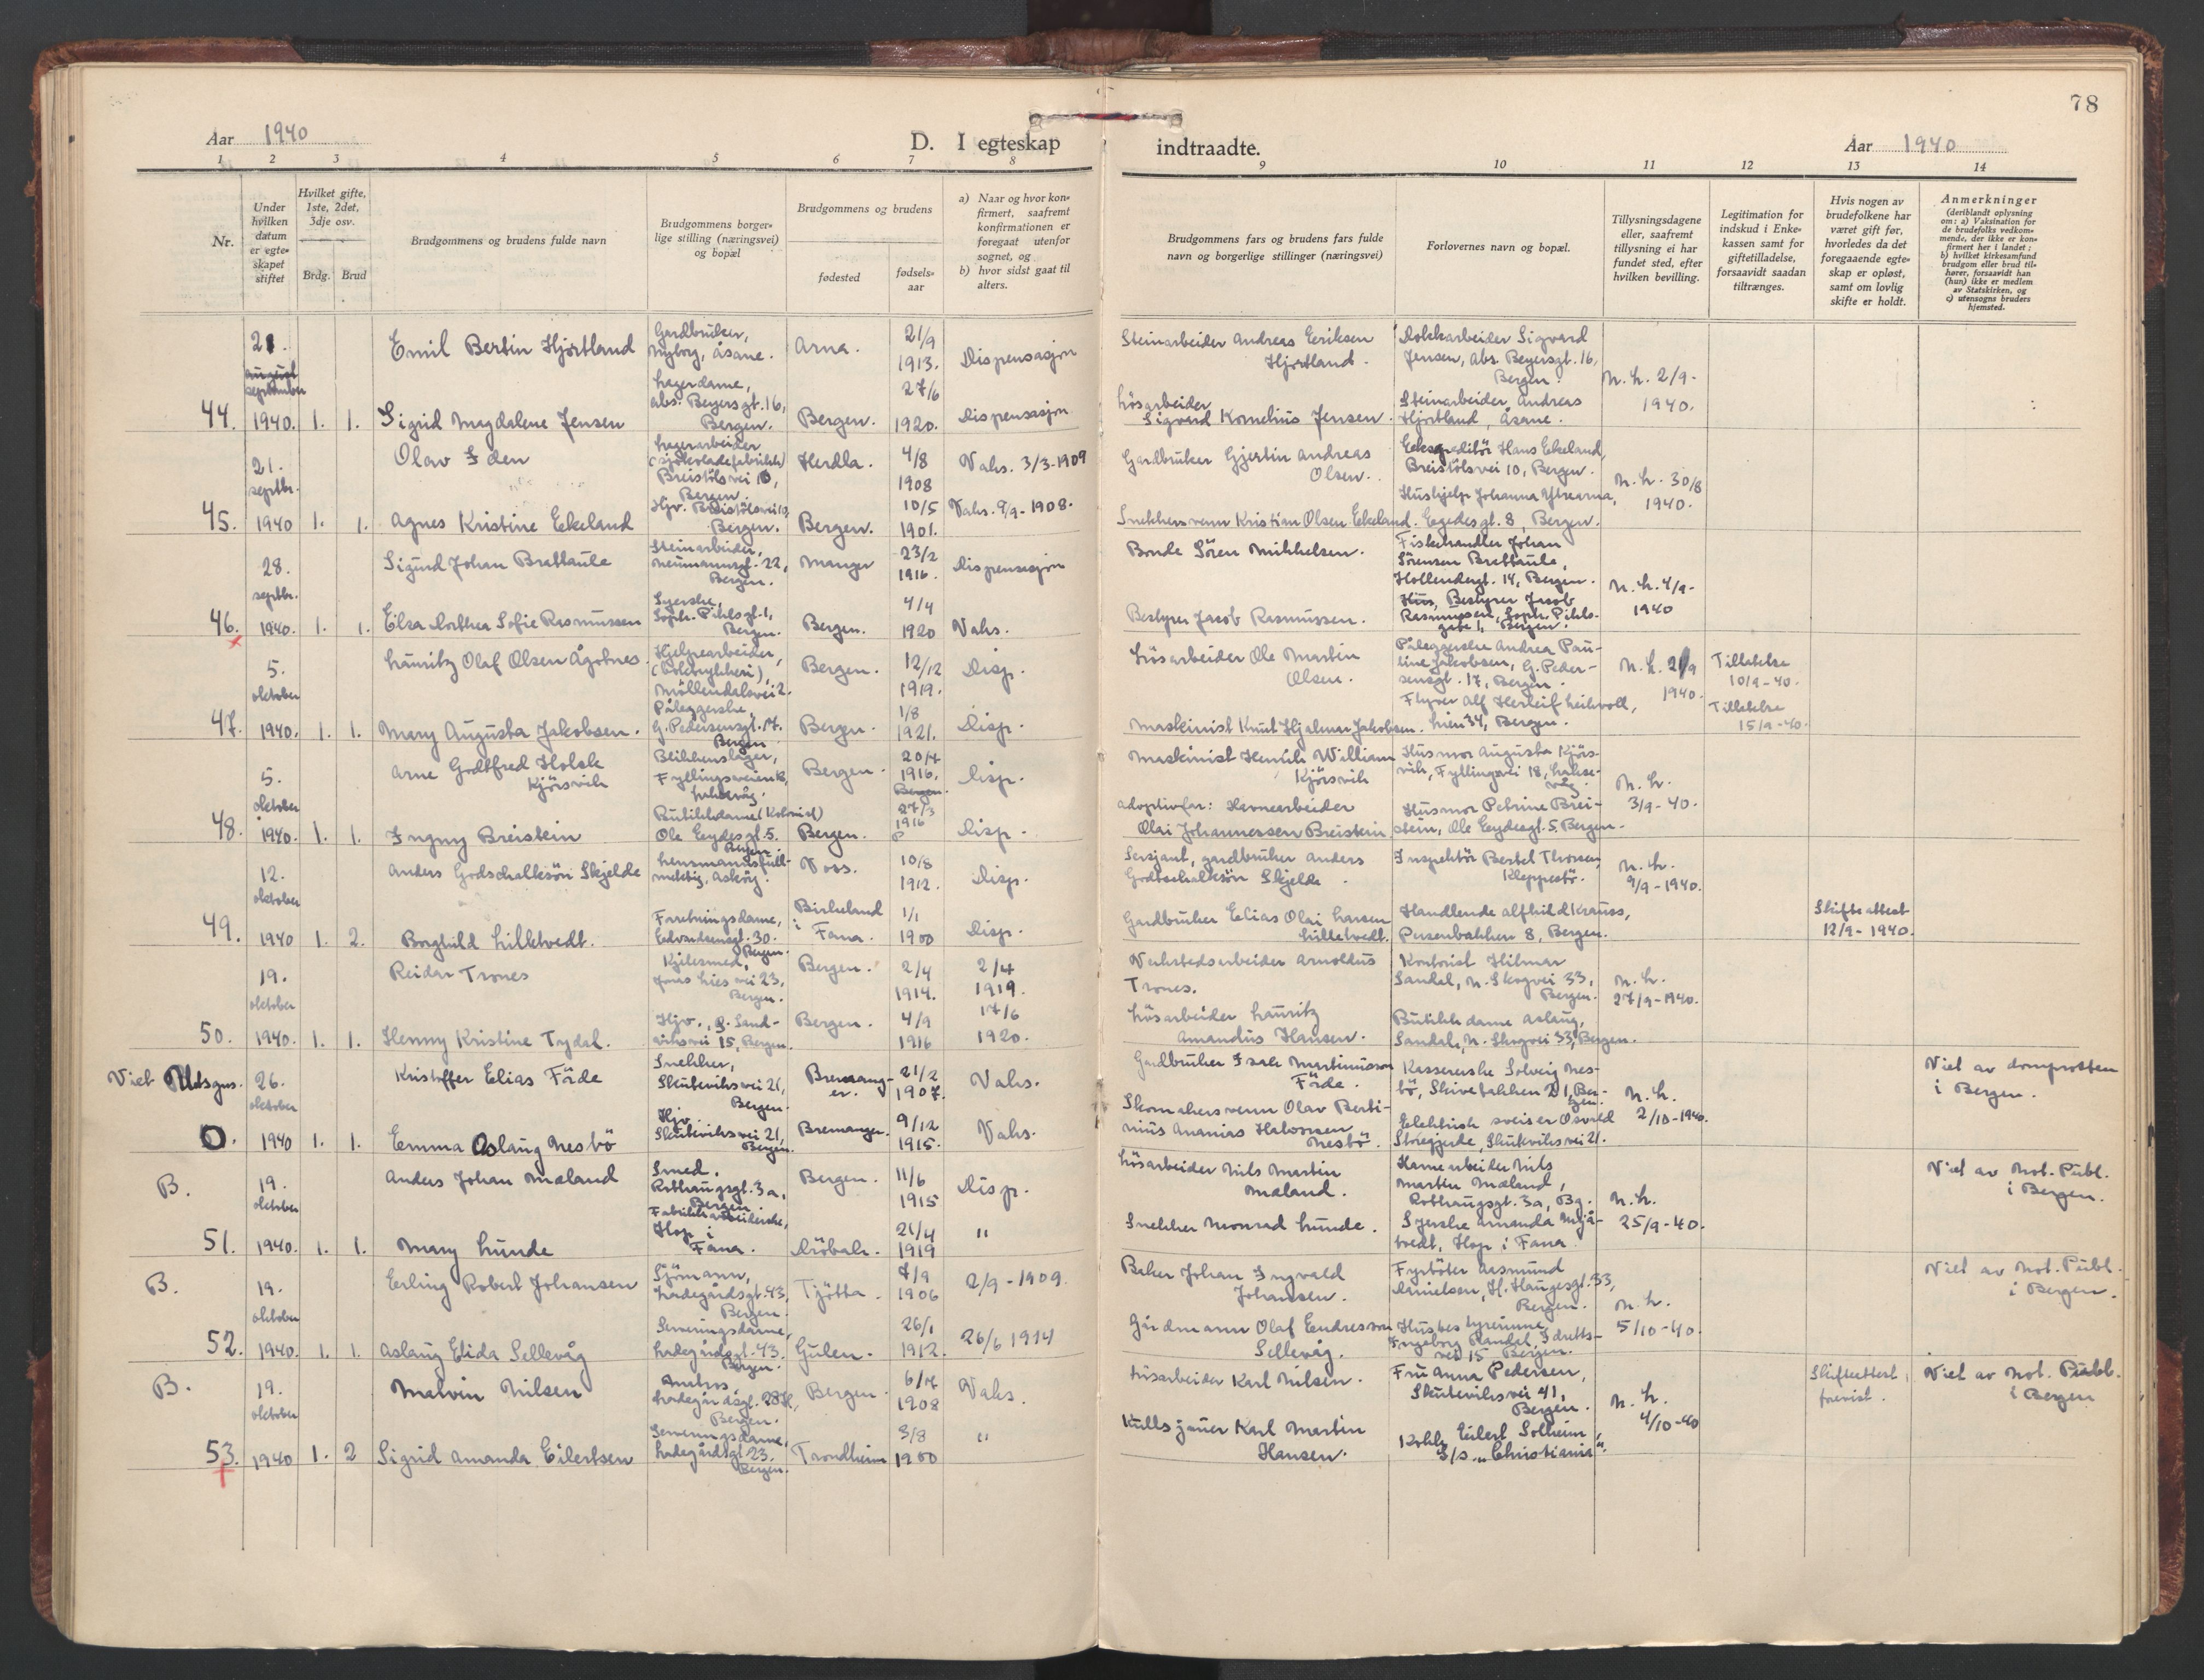 78
Aar 1940
D. I egteskap indtraadte.
Aar 1940
1 2 3 4 5 6 7 8 9 10 11 12 13 14
Nr.
Under hvilken datum er egteskapet stiftet
Hvilket gifte, 1ste, 2det, 3dje osv.
Brdg. Brud
Brudgommens og brudens fulde navn
Brudgommens borgerlige stilling (næringsvei) og bopæl
Brudgommens og brudens
fødested
fødselsaar
a) Naar og hvor konfirmert, saafremt konfirmationen er foregaat utenfor sognet, og
b) hvor sidst gaat til alters.
Brudgommens fars og brudens fars fulde navn og borgerlige stillinger (næringsvei)
Forlovernes navn og bopæl.
Tillysningsdagene eller, saafremt tillysning ei har fundet sted, efter hvilken bevilling.
Legitimation for indskud i Enkekassen samt for giftetilladelse, forsaavidt saadan tiltrænges.
Hvis nogen av brudefolkene har været gift før, hvorledes da det foregaaende egteskap er opløst, samt om lovlig skifte er holdt.
Anmerkninger
(deriblandt oplysning om: a) Vaksination for de brudefolks vedkommende, der ikke er konfirmert her i landet; b) hvilket kirkesamfund brudgom eller brud tilhører, forsaavidt han (hun) ikke er medlem av Statskirken, og c) utensogns bruders hjemsted.
44. 21. september 1940. 1. 1.
Emil Bertin Hjortland
Gardbruker, Nyborg, Åsane.
Arna.
21/9 1913.
Dispensasjon
Steinarbeider Andreas Eriksen Hjortland.
Dokkarbeider Sigvard Jensen, Abs. Beyersgt. 16, Bergen.
N. h. 2/9-1940.
Sigrid Magdalene Jensen
Lagerdame, Abs. Beyersgt. 16, Bergen.
Bergen.
27/6 1920.
Dispensasjon
Løsarbeider Sigvard Kornelius Jensen.
Steinarbeider Andreas Hjortland, Åsane.
45. 21. septbr. 1940 1. 1.
Olav Iden
Lagerarbeider (sjokoladefabrikk) Breistølsvei 10, Bergen.
Herdla.
4/8 1908
Vaks. 3/3-1909
Gardbruker Gjertin Andreas Olsen.
Ekspeditør Hans Ekeland, Breistølsvei 10, Bergen.
N. h. 30/8 1940.
Agnes Kristine Ekeland
Hjv. Breistølsvei 10, Bergen.
Bergen.
10/5 1901.
Vaks. 9/9-1908.
Snekkersvenn Kristian Olsen Ekeland.
Hushjelp Johanna Ytrearna, Egedesgt. 8, Bergen.
46. 28. septbr. 1940. 1. 1.
Sigurd Johan Brattaule
Steinarbeider, Neumannsgt. 22, Bergen.
Manger
23/2 1916.
Dispensasjon
Bonde Sören Mikkelsen.
Fiskehandler Johan Sörensen Brattaule, Hollendergt. 14, Bergen.
N. h. 4/9-1940
Elsa Dorthea Sofie Rasmussen
Syerske, Soph. Pihlsgt. 1, Bergen.
Bergen.
4/4 1920
Vaks.
Bestyrer Jacob Rasmussen.
Bestyrer Jacob Rasmussen, Soph. Pihlsgate 1, Bergen.
47. 5. oktober 1940. 1. 1.
Lauritz Olaf Olsen Ågotnes.
Hjelpearbeider, Möllendalsvei 2.
Bergen.
12/12 1919.
Disp.
Løsarbeider Ole Martin Olsen.
Påleggerske Andrea Pauline Jakobsen, G. Pedersensgt. 17, Bergen.
N. h. 21/9 1940.
Tillatelse 10/9-40.
Mary Augusta Jakobsen.
Påleggerske, G. Pedersensgt. 17. Bergen
Bergen.
1/8 1921.
Disp.
Maskinist Knut Hjalmar Jakobsen.
Flyver Alf Herleif Leikvoll, Lien 34, Bergen.
Tillatelse 15/9-40.
48. 5. oktober 1940. 1. 1.
Arne Godtfred Holck Kjörsvik
Blikkenslager, Fyllingsveien 18, Laksevåg.
Bergen.
20/7 1916.
Disp.
Maskinist Henrik William Kjörsvik
Husmor Augusta Kjörsvik, Fyllingsvei 18, Laksevåg
N. h. 3/9-40.
Ingny Breistein
Butikkdame (Kolonial) Ole Eeydesgt. 5. Bergen.
Bergen.
27/3 1916
Disp.
Adoptivfar: Havnearbeider Olai Johannessen Breistein
Husmor Petrine Breistein, Ole Eeydesgt. 5. Bergen.
49. 12. oktober 1940 1. 2.
Anders Godschalksön Skjelde
Lensmannsfullmektig, Asköy.
Voss.
10/8 1912.
Disp.
Sersjant, gardbruker Anders Godtschalksön Skjelde.
Inspektör Bertel Thorsen, Kleppestö.
N. h. 9/9-1940.
Borghild Lilletvedt.
Forretningsdame, Edvardsensgt. 30. Bergen.
Birkeland i Fana.
1/1 1900
Disp.
Gardbruker Elias Olai Larsen Lilletvedt.
Handlende Alfhild Krauss, Persenbakken 8, Bergen.
Skifteattest 12/9-1940.
50. 19. oktober 1940. 1. 1.
Reidar Trones
Kjelesmed, Jonas Lies vei 23, Bergen.
Bergen.
2/4 1914.
2/4 1919.
Verkstedsarbeider Arnoldus Trones.
Kontorist Hilmar Sandal, N. Skogvei 33, Bergen.
N. h. 27/9-1940.
Henny Kristine Tydal.
Hjv., S. Sandviksvei 15, Bergen.
Bergen.
4/9 1916
17/6 1920.
Løsarbeider Lauritz Amandus Hansen.
Butikkdame Aslaug Sandal, N. Skogvei 33, Bergen.
Viet Utsgns. 0. 26. oktober 1940 1. 1.
Kristoffer Elias Förde
Snekker, Skuteviksvei 21, Bergen.
Bremanger.
21/2 1907.
Vaks.
Gardbruker Isak Martinusson Förde.
Kassererske Solveig Nesbö, Skivebakken 21, Bergen.
N. h. 2/10-1940.
Viet av domprosten i Bergen.
Emma Aslaug Nesbö
Hjv. Skuteviksvei 21, Bergen.
Bremanger.
9/12 1915.
Vaks.
Skomakersvenn Olav Bertinius Ananias Nesbö.
Elektrisk sveiser Osvald Storegjerde, Skuteviksvei 21.
B. 51. 19. oktober 1940. 1. 1.
Anders Johan Mæland
Smed. Rothaugsgt. 3a, Bergen.
Bergen.
11/6 1915
Disp.
Løsarbeider Nils Martin Mæland.
Havnearbeider Nils Martin Mæland, Rothaugsgt. 3a, Bg.
N. h. 25/9-40.
Viet av Not. Publ. i Bergen.
Mary Lunde
Fabrikkarbeiderske, Hop i Fana.
Dröbak.
21/4 1919
"
Snekker Monrad Lunde.
Syerske Amanda Mjåtvedt, Hop i Fana.
B. 52. 19. oktober 1940. 1. 1.
Erling Robert Johansen
Sjömann, Ladegårdsgt. 43, Bergen.
Tjötta.
7/9 1906
2/9-1909.
Baker Johan Ingvald Johansen.
Fyrböter Aasmund Danielsen, H. Haugesgt. 33, Bergen.
N. h. 5/10-40.
Viet av Not. Publ. i Bergen.
Aslaug Elida Sellevåg
Serveringsdame, Ladegårdsgt. 43. Bergen.
Gulen.
26/1 1912.
26/6 1914
Gårdmann Olaf Endresson Sellevåg.
Husbestyrerinne Ingeborg Randal, Idrettsvei 15 Bergen.
B. 53. 19. oktober 1940 1. 2
Malvin Nilsen
Ladegårdsgt. Bergen.
Bergen.
6/7 1908
Vaks.
Løsarbeider Karl Nilsen.
Fru Anna Pedersen, Skuteviksvei 41, Bergen.
N. h. 4/10-40
Skifteattest forevist.
Viet av Not. Publ. i Bergen
Sigrid Amanda Eilertsen
Serveringsdame, Ladegårdsgt. 23. Bergen.
Trondheim
3/8 1900
"
Kullsjauer Karl Martin Hansen.
Eilert Solheim, S/s "Christiania".